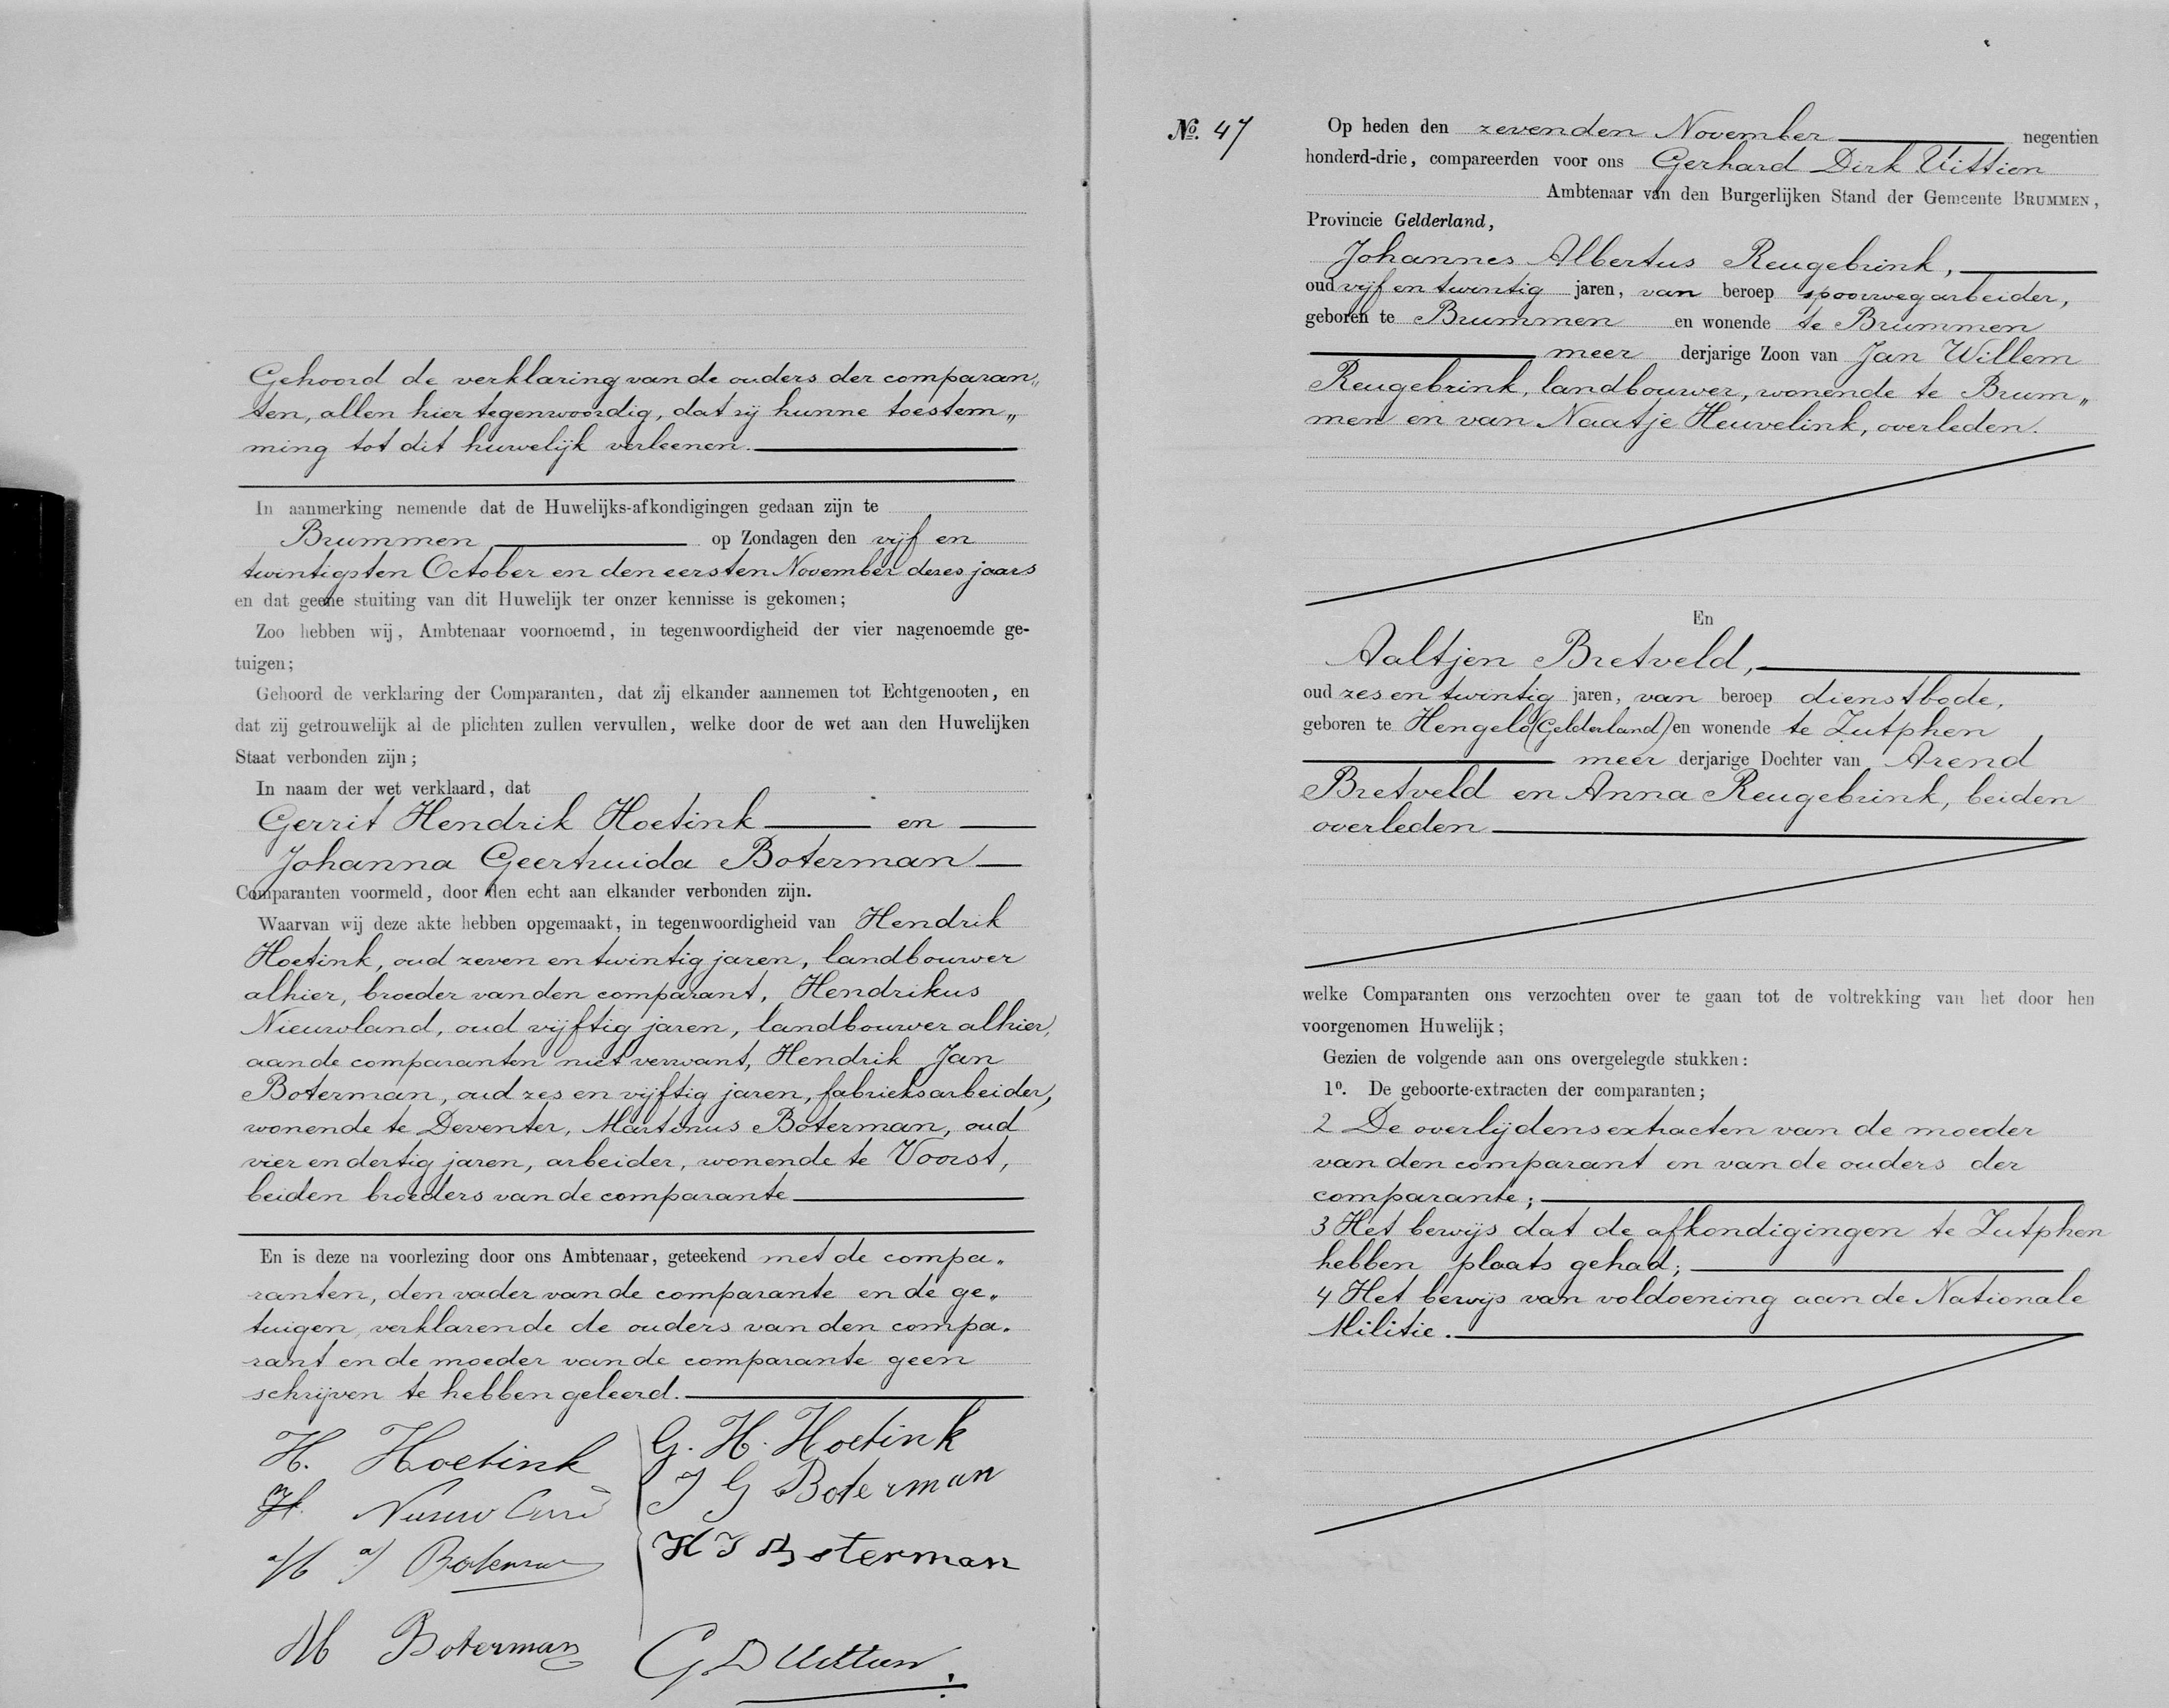 Gehoord de verklaring van de ouders der comparan„
ten, allen hier tegenwoordig, dat zij hunne toestem„
ming tot dit huwelijk verleenen.
In aanmerking nemende dat de Huwelijks-afkondigingen gedaan zijn te
Brummen op Zondagen den vijf en
twintigsten October en den eersten November dezes jaars
en dat geene stuiting van dit Huwelijk ter onzer kennisse is gekomen;
Zoo hebben wij, Ambtenaar voornoemd, in tegenwoordigheid der vier nagenoemde ge-
tuigen;
Gehoord de verklaring der Comparanten, dat zij elkander aannemen tot Echtgenooten, en
dat zij getrouwelijk al de plichten zullen vervullen, welke door de wet aan den Huwelijken
Staat verbonden zijn;
In naam der wet verklaard, dat
Gerrit Hendrik Hoetink en
Johanna Geertruida Boterman
Comparanten voormeld, door den echt aan elkander verbonden zijn.
Waarvan wij deze akte hebben opgemaakt, in tegenwoordigheid van Hendrik
Hoetink, oud zeven en twintig jaren, landbouwer
alhier, broeder van den comparant, Hendrikus
Nieuwland, oud vijftig jaren, landbouwer alhier,
aan de comparanten niet verwant, Hendrik Jan
Boterman, oud zes en vijftig jaren, fabrieksarbeider,
wonende te Deventer, Martinus Boterman, oud
vier en dertig jaren, arbeider, wonende te Voorst,
beiden broeders van de comparante
En is deze na voorlezing door ons Ambtenaar, geteekend met de compa„
ranten, den vader van de comparante en de ge„
tuigen, verklarende de ouders van den compa„
rant en de moeder van de comparante geen
schrijven te hebben geleerd.
H. Hoetink
G. H. Hoetink
J G Boterman
H. Nieuwland
H J Boterman
H J Boterman
M Boterman
G D Uittien.
No. 47
Op heden den zevenden November negentien
honderd-drie, compareerden voor ons Gerhard Dirk Uittien
Ambtenaar van den Burgerlijken Stand der Gemeente BRUMMEN,
Provincie Gelderland,
Johannes Albertus Reugebrink,
oud vijf en twintig jaren, van beroep spoorwegarbeider,
geboren te Brummen en wonende te Brummen
meer derjarige Zoon van Jan Willem
Reugebrink, landbouwer, wonende te Brum„
men en van Naatje Heuvelink, overleden.
En
Aaltjen Bretveld,
oud zes en twintig jaren, van beroep dienstbode,
geboren te Hengelo (Gelderland) en wonende te Zutphen
meer derjarige Dochter van Arend
Bretveld en Anna Reugebrink, beiden
overleden
welke Comparanten ons verzochten over te gaan tot de voltrekking van het door hen
voorgenomen Huwelijk;
Gezien de volgende aan ons overgelegde stukken:
1o. De geboorte-extracten der comparanten;
2 De overlijdensextracten van de moeder
van den comparant en van de ouders der
comparante;
3 Het bewijs dat de afkondigingen te Zutphen
hebben plaats gehad;
4 Het bewijs van voldoening aan de Nationale
Militie.